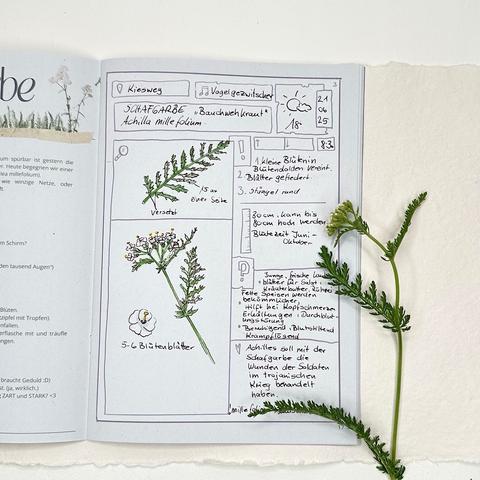 be
um spürbar ist gestern die
Heute begegnen wir einer
illea millefolium).
wie winzige Netze, oder
m Schirm?
den tausend Augen")
Blüten.
tzipfel mit Tropfen).
nfallen.
erflasche mit und träufle
nungen.
braucht Geduld :D)
st. (Ja, wirklich.)
g ZART und STARK? <3
3
Kiesweg
Vogelgezwitscher
SCHAFGARBE „Bauchwehkraut"
Achilla millefolium.
18°
21
06
25
Versetzt
15 an
einer Seite
1. kleine Blüten in
Blütendolden vereint.
2. Blätter gefiedert.
3. Stängel rund
30 cm. kann bis
80 cm hoch werden.
Blütezeit Juni -
Oktober
5-6 Blütenblätter
Sonne, frische
Blätter für Salat
Kräuterbutter,
Fette Speisen werden
bekömmlicher
Hilft bei Kopfschmerzen
Erkältungen. Durchblut-
ungsstörung
Beruhigend. Blutstillend
Krampflösend
Achilles soll mit der
Schafgarbe die
Wunden der Soldaten
im trojanischen
Krieg behandelt
haben.